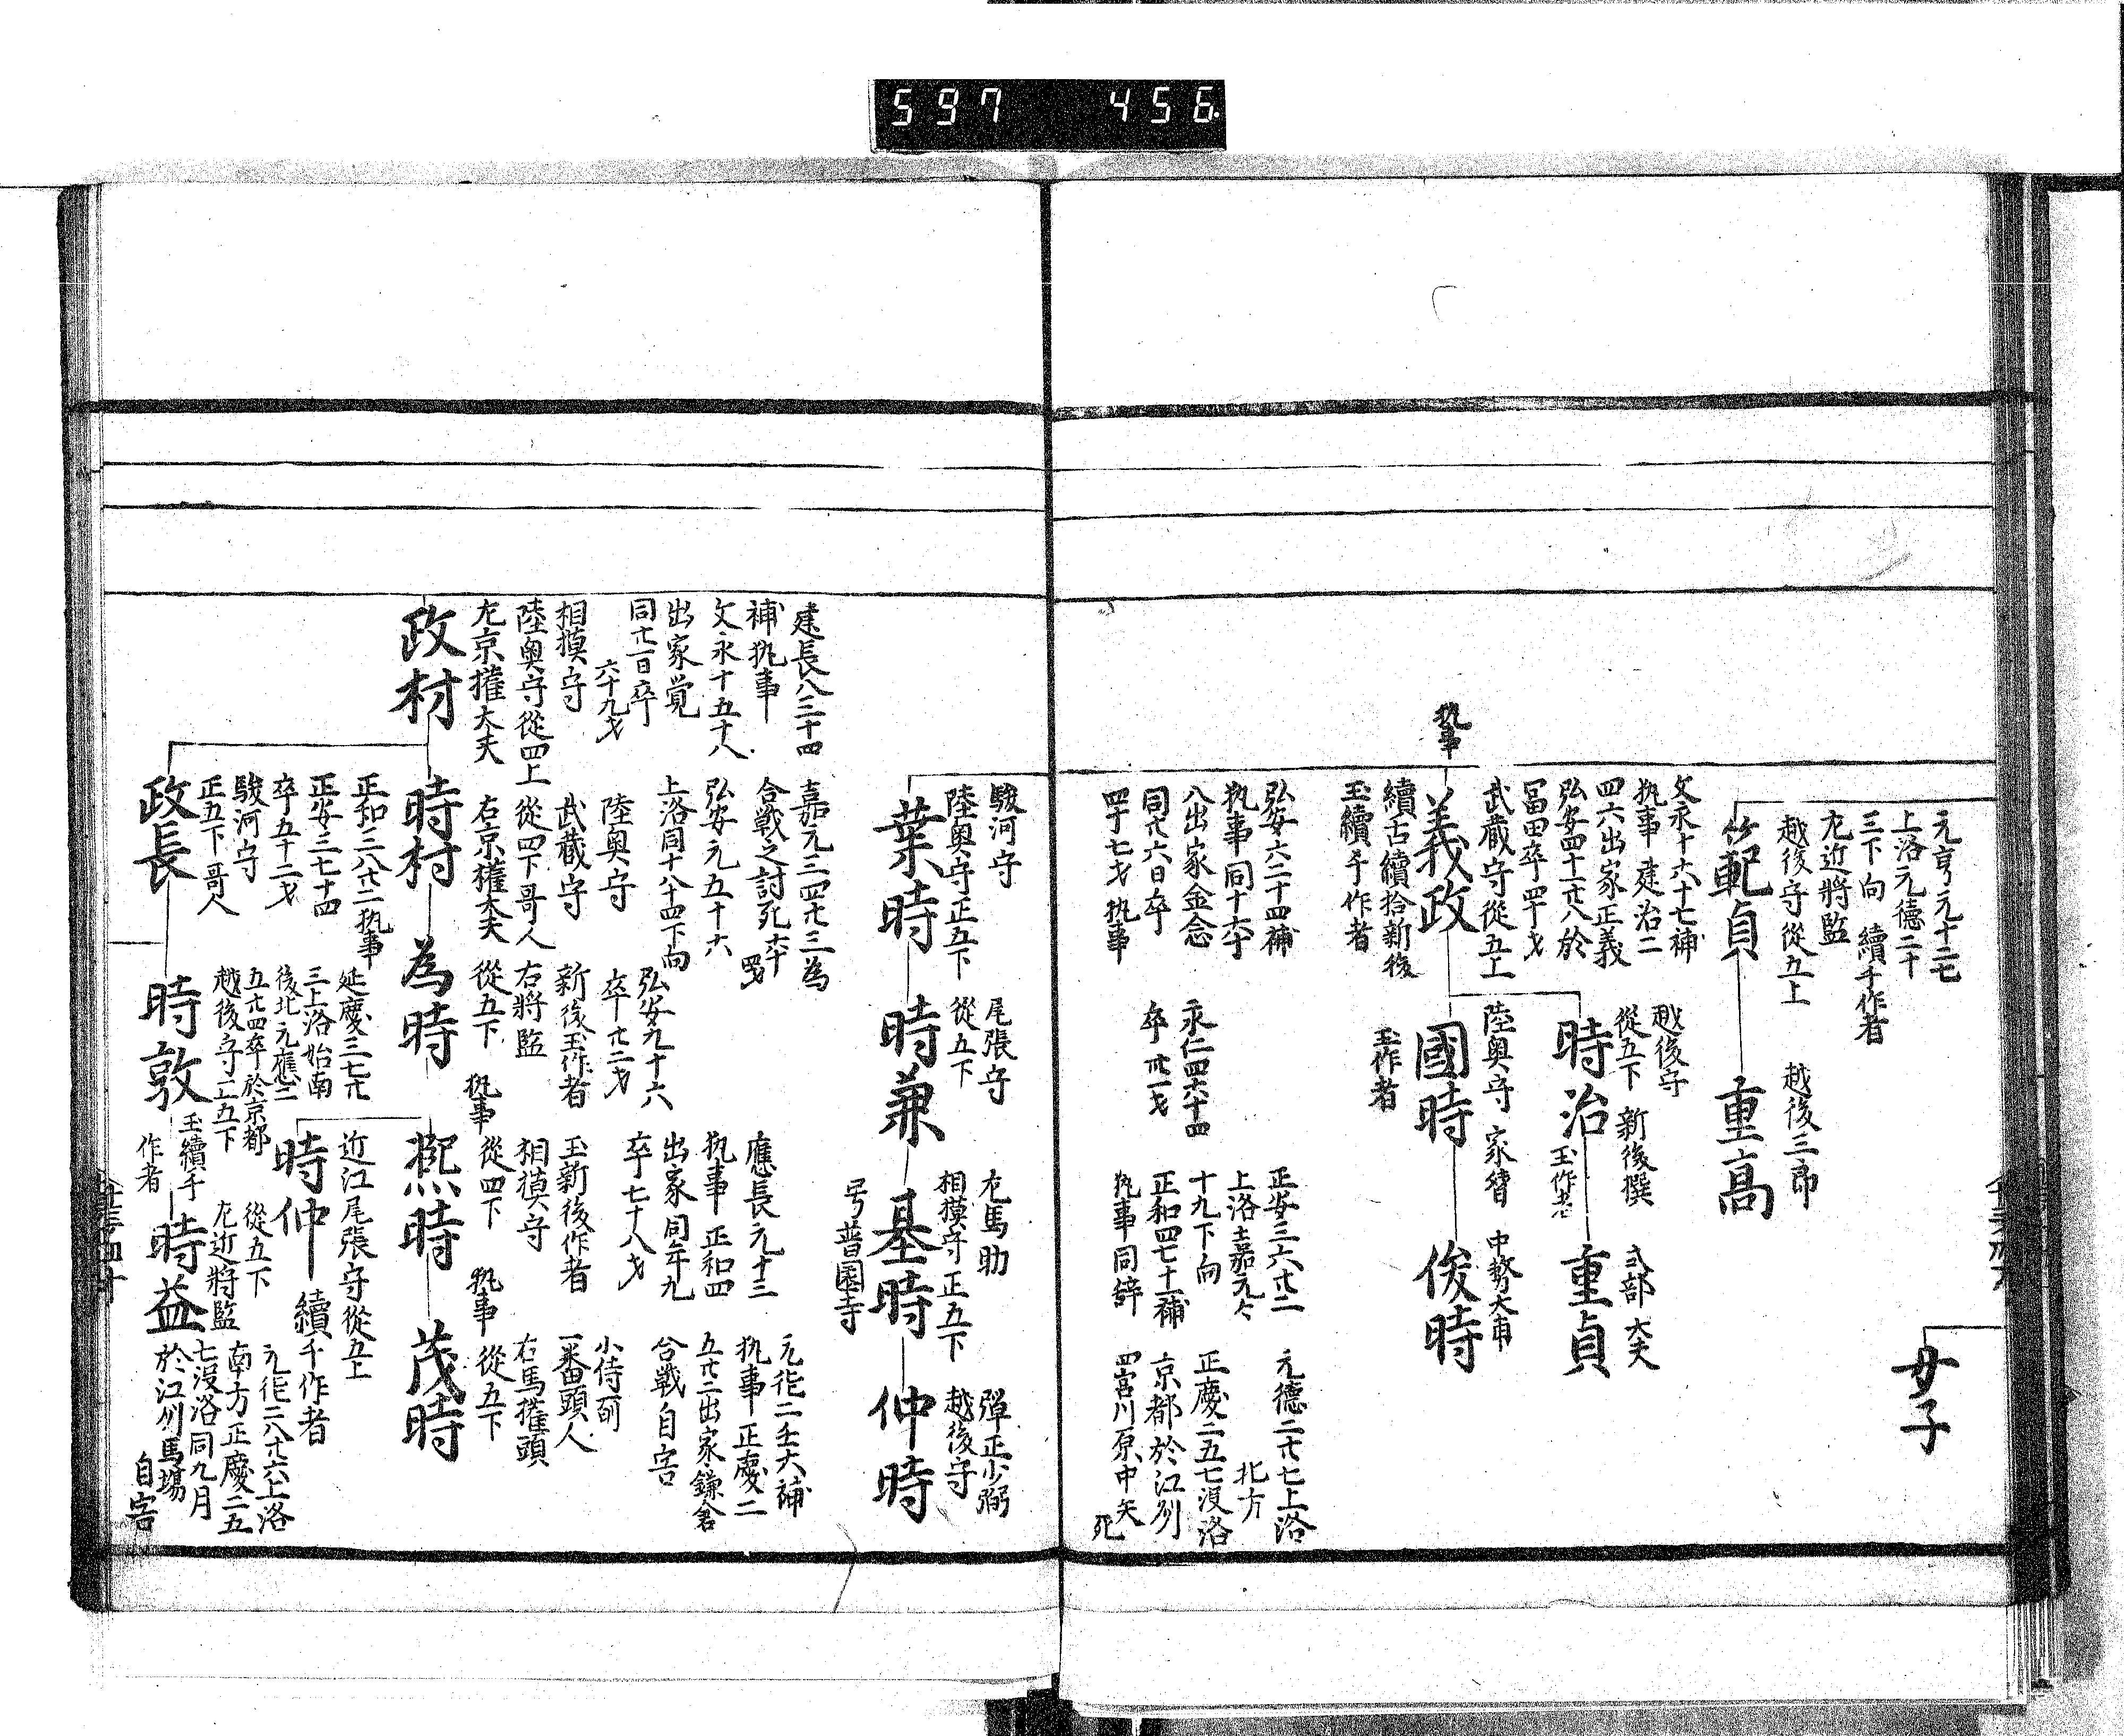 597 456
女子
元亨元十二七
上洛元德二十
三下向 續千作者
左近將監
越後守從五上
範貞
越後三郎
重高
文永十六十七補
執事 建治二
四六出家正義
弘安四十一廿八於
冨田卒四十才
武藏守從五上
執事
義政
續古續拾新後
玉續千作者
越後守
從五下 新後撰
時治
玉作者
式部大夫
重貞
陸奥守 家督
國時
玉作者
中務大甫
俊時
弘安六二十四補
執事同十六十
八出家金念
同廿六日卒
四十七才執事
永仁四六十四
卒卅一才
正安三六廿二
上洛 嘉元々
十九下向
正和四七十二補
執事同辞
元德二廿七上洛
北方
正慶二五七没洛
京都於江刕
四宮川原中矢
死
駿河守
陸奥守正五下
業時
尾張守
從五下
時兼
左馬助
相摸守正五下
基時
号普園寺
弾正少弼
越後守
仲時
建長八三十四
補執事
文永十五十八
出家覚
同廿一日卒
六十九才
相摸守
陸奥守從四上
左京權大夫
政村
嘉元三四廿三為
合戦之討死六十
四才
弘安元五十六
上洛同十八十四下向
陸奥守
武藏守
從四下哥人
右京權大夫
時村
弘安九十六
卒廿二才
新後玉作者
右將監
從五下
為時
應長元十三
執事 正和四
出家同年九
卒七十八才
玉新後作者
相摸守
從四下
執事
熙時
元徳二壬六補
執事 正慶二
五廿二出家鎌倉
合戦自害
小侍所
一番頭人
右馬權頭
從五下
執事
茂時
近江尾張守從五上
時仲
續千作者
正和三八廿二執事
正安三七十四
卒五十二才
駿河守
正五下哥人
政長
延慶三七廿
三上洛始南
後北元應二
五廿四卒於京都
越後守正五下
時敦
玉續千
作者
從五下
左近將監
時益
元徳二八廿六上洛
南方正慶二五
七没洛同九月
於江刕馬場
自害